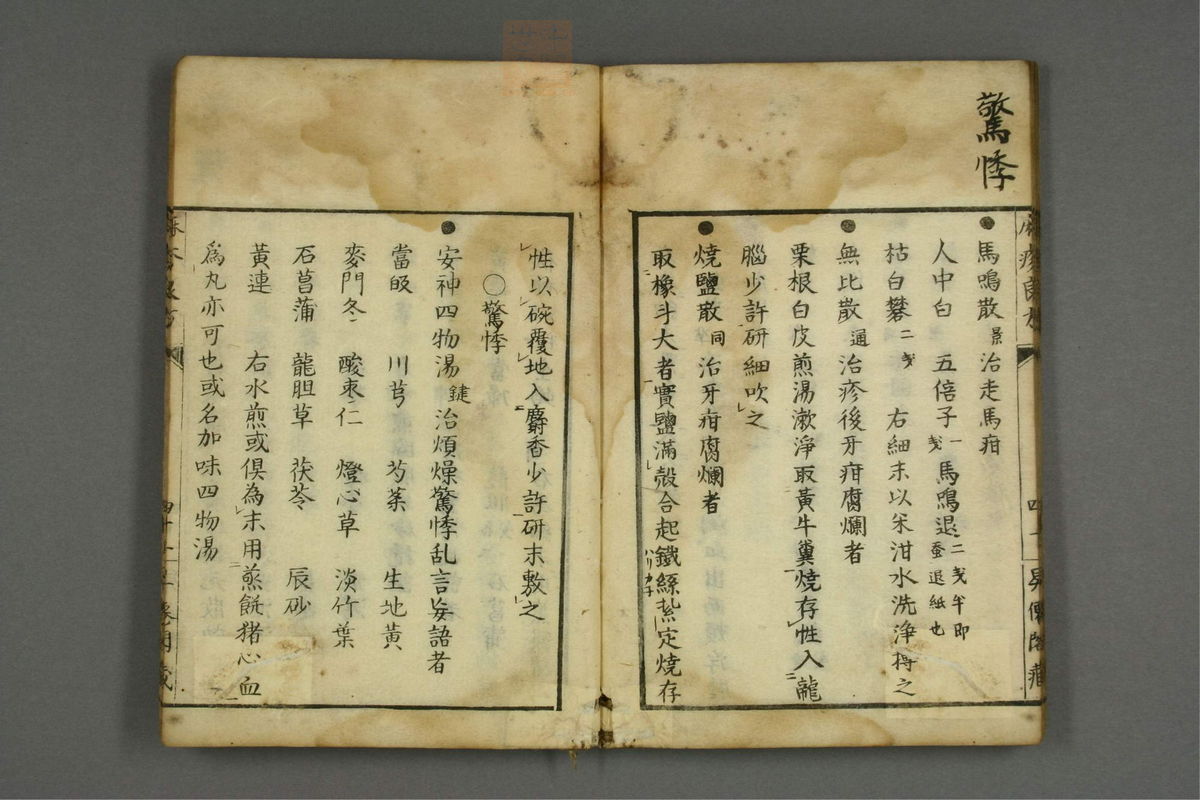 驚悸
馬鳴散 景 治走馬疳
人中白 五倍子 一戔 馬鳴退 二戔半即蚕退紙也
枯白礬 二戔 右細末以米泔水洗浄搗之
無比散 通 治疹後牙疳腐爛者
栗根白皮煎湯漱淨取黃牛糞燒存性入龍
腦少許研細吹之
燒鹽散 同 治牙疳腐爛者
取橡斗大者實鹽滿殼合起鐵絲紮定燒存
ハリカネ
性以碗覆地入麝香少許研末敷之
〇驚悸
安神四物湯 鍵 治煩燥驚悸乱言妄語者
當皈 川芎 芍薬 生地黃
麥門冬 酸棗仁 燈心草 淡竹葉
石菖蒲 龍胆草 茯苓 辰砂
黃連 右水煎或倶為末用蒸餅猪心血
爲丸亦可也或名加味四物湯